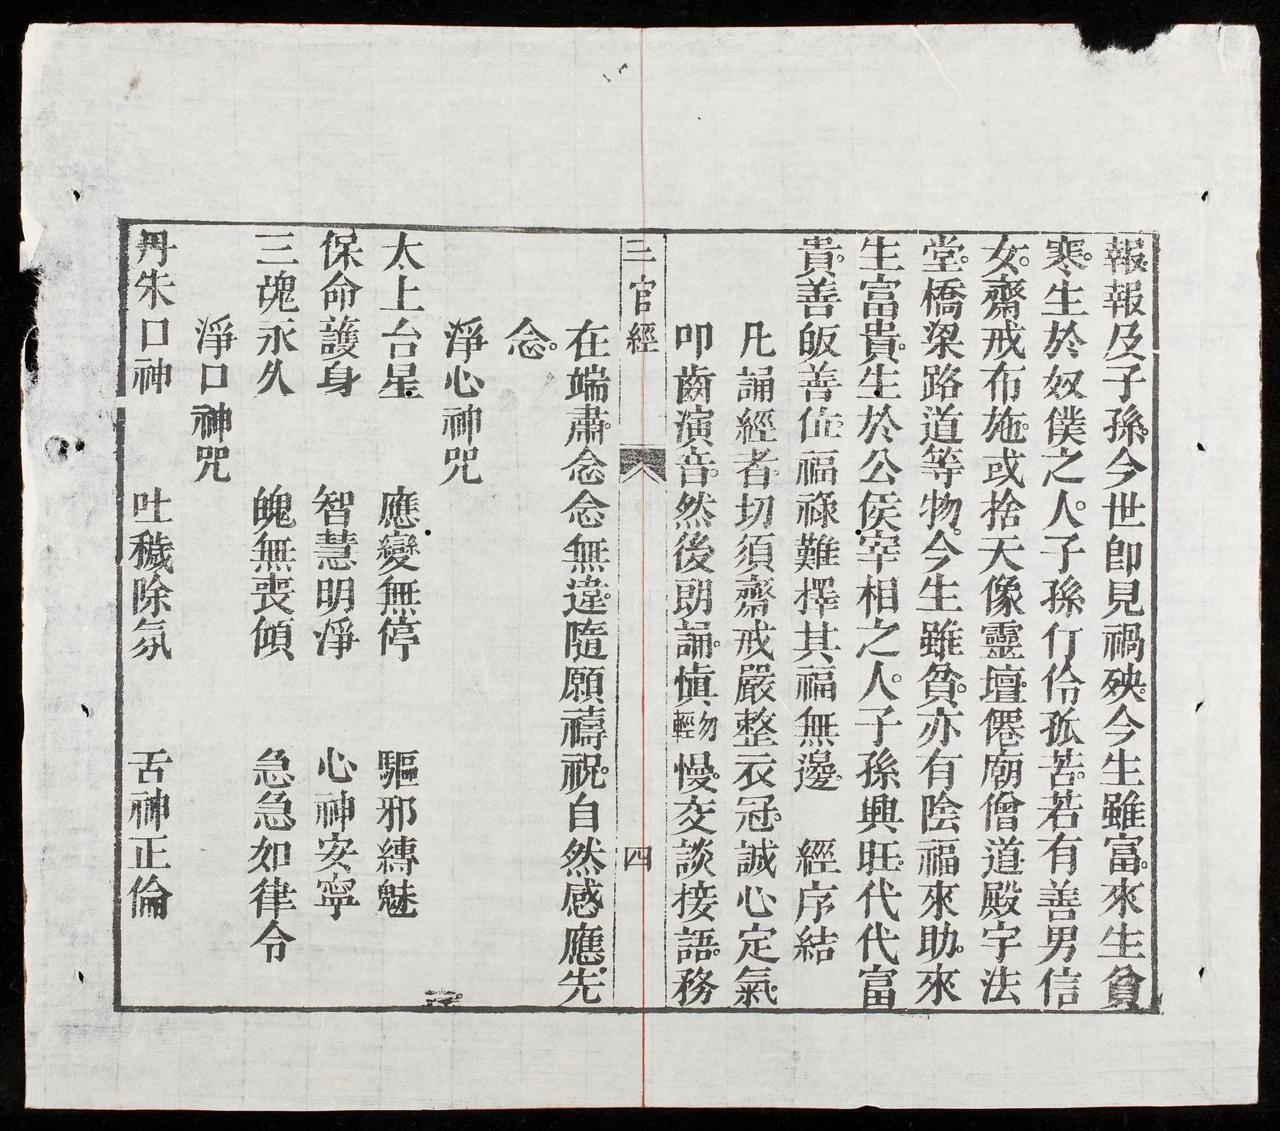 報報及子孫。今世卽見禍殃。今生雖富。來生貧
寒。生於奴僕之人。子孫仃伶孤苦。若有善男信
女。齋戒布施。或捨天像靈壇。僊廟僧道殿宇法
堂。橋梁路道等物。今生雖貧。亦有陰福來助。來
生富貴。生於公侯宰相之人。子孫興旺。代代富
貴。善皈善位。福祿難擇。其福無邊。 經序結
凡誦經者。切須齋戒。嚴整衣冠。誠心定氣。
叩齒演音。然後朗誦。愼勿輕慢。交談接語。務
三官經 四
在端肅。念念無違。隨願禱祝。自然感應。先
念。
淨心神咒
太上台星 應變無停 驅邪縛魅
保命護身 智慧明淨 心神安寧
三魂永久 魄無喪傾 急急如律令
淨口神咒
丹朱口神 吐穢除氛 舌神正倫